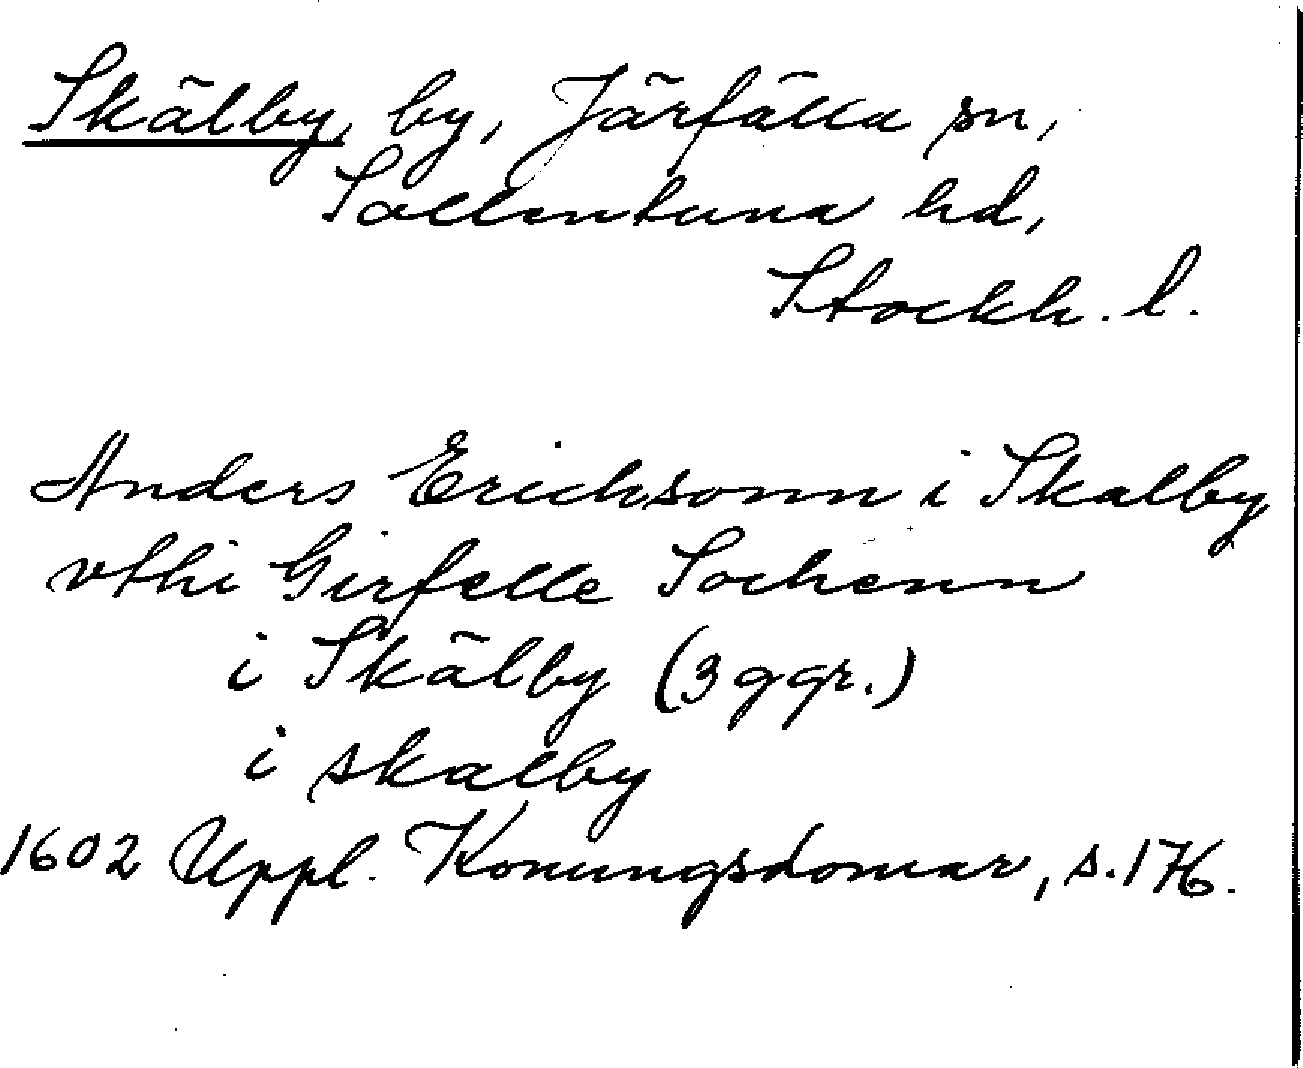 Skälby, by, Järfälla sn,
Sollentuna hd,
Stockh. l.
Anders Ericksonn i Skalby
vthi Girfelle Sochenn
i Skälby (3 ggr.)
i skalby
1602 Uppl. Konungsdomar, s. 176.